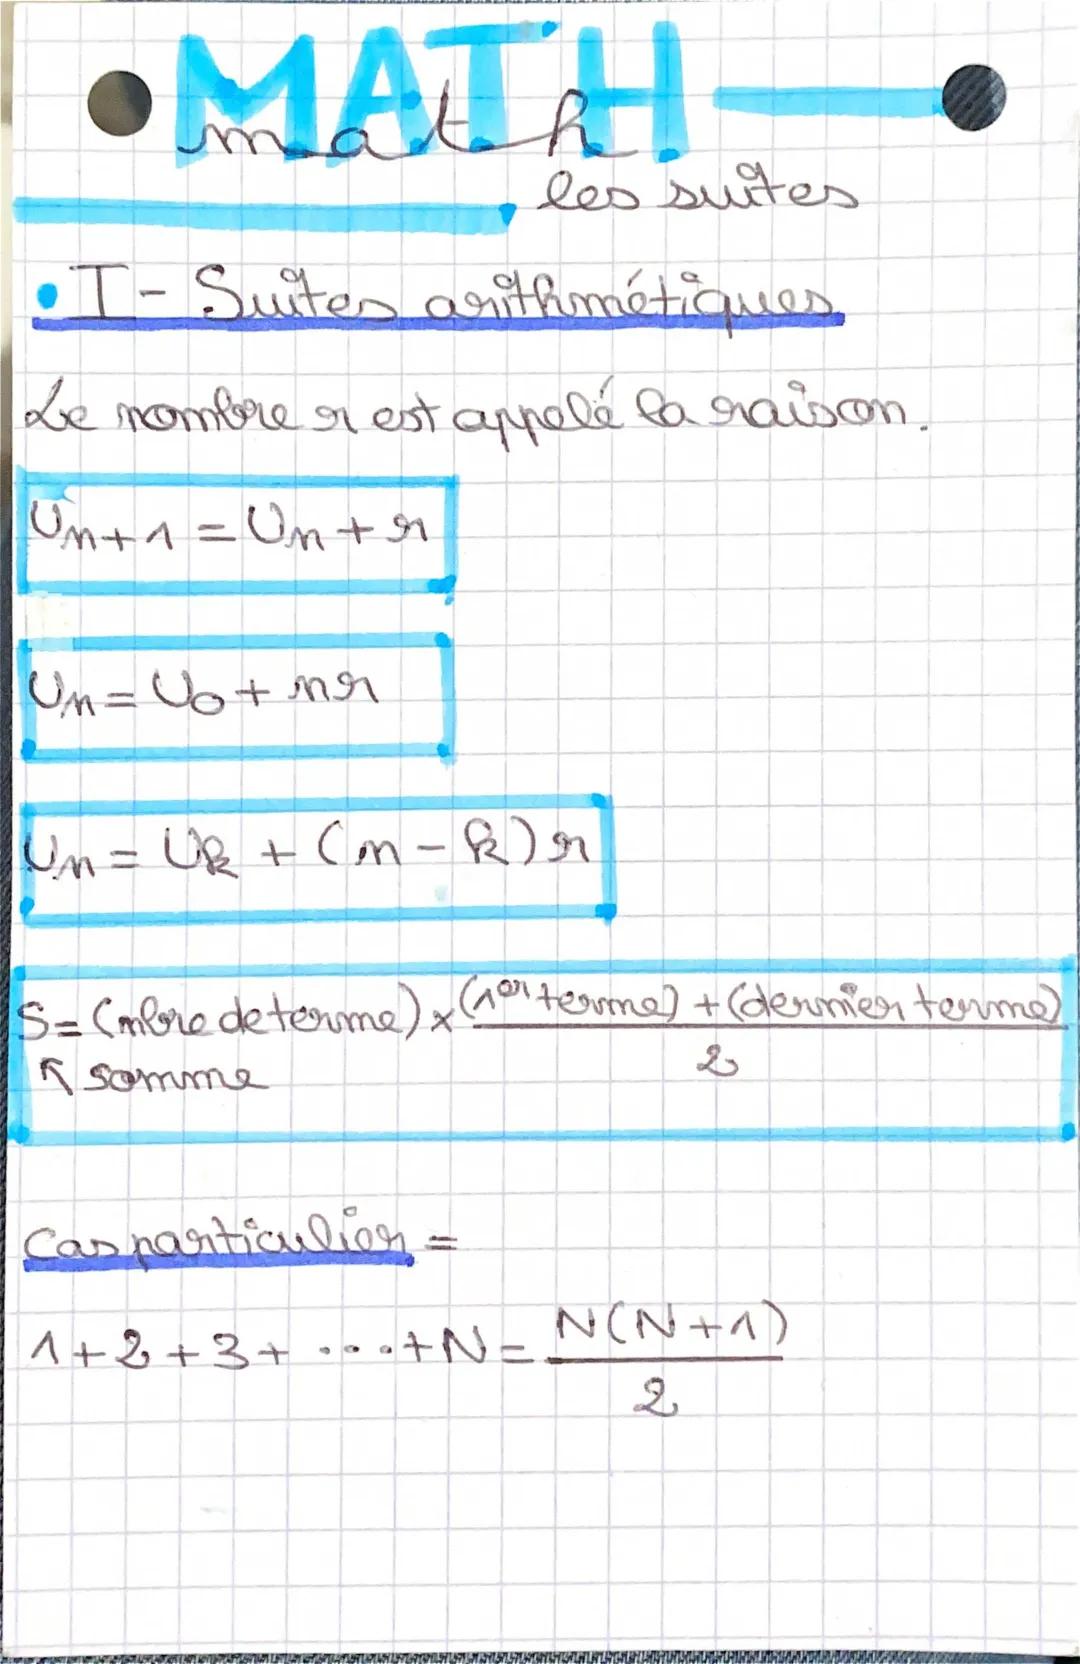 MATH
math
les suites
• I - Suites arithmétiques
Le nombre r est appelé la raison.
Un+1 = Un + r
Un = U0 + nr
Un = Uk + (n - k) r
S = (nbre de terme) x (1er terme) + (dernier terme)
2
↖ somme
Cas particulier =
1 + 2 + 3 + ... + N = N(N+1)
2